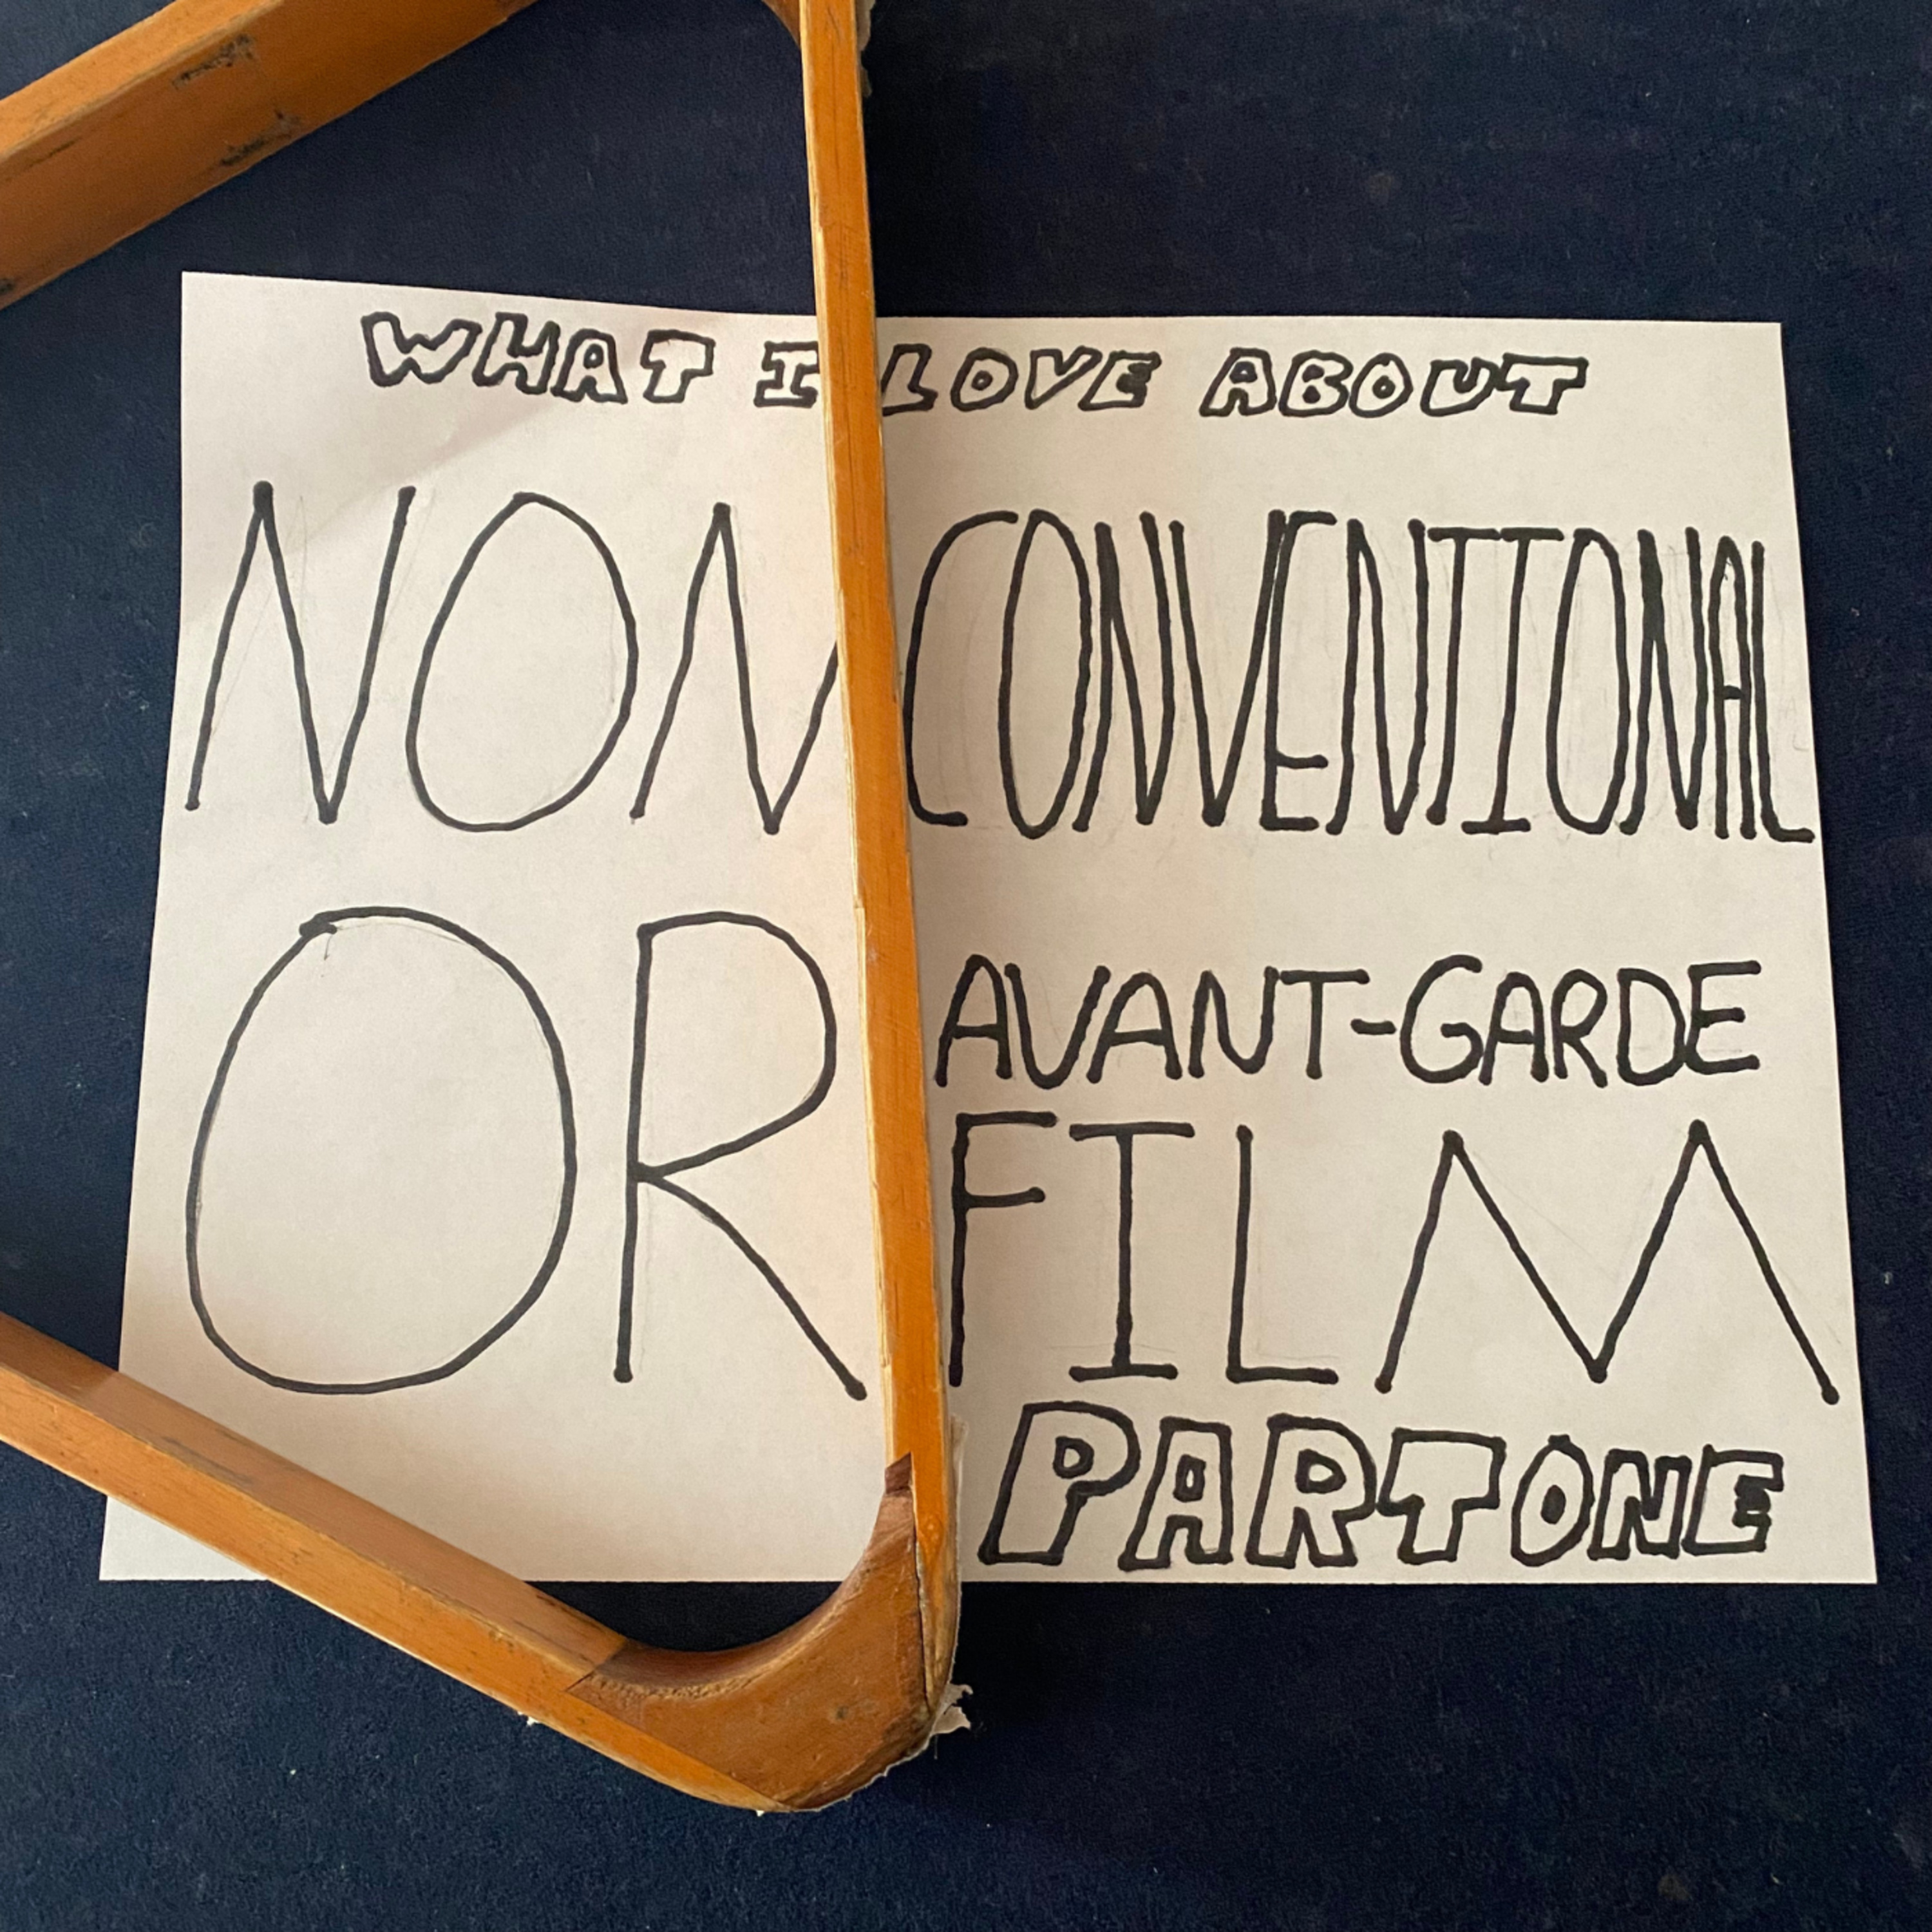 WHAT I LOVE ABOUT
NON CONVENTIONAL
OR AVANT-GARDE
FILM
PART ONE